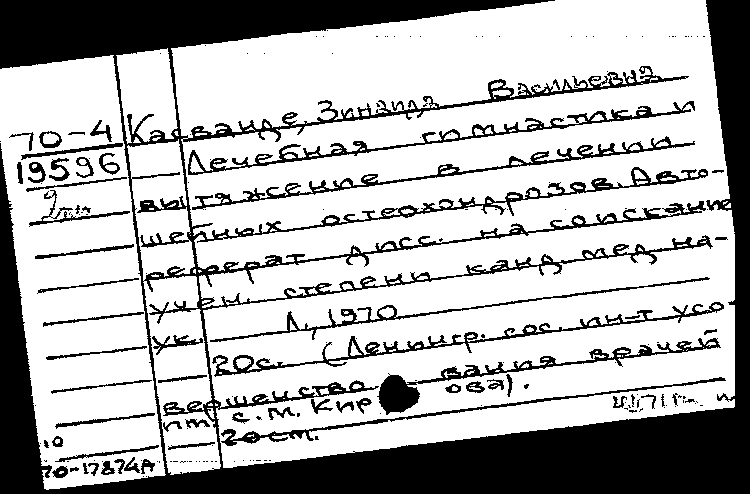 70-4 Касванде, Зинаида Васильевна
19596 Лечебная гимнастика и
2 вытяжение в лечении
шейных остеохондрозов. Авто-
реферат дисс. на соискание
учен. степени канд. мед. на-
ук. Л., 1970
20с. (Ленингр. гос. ин-т усо-
вершенство вания врачей
им. С.М. Кир ова).
20см.
10
70-17874А